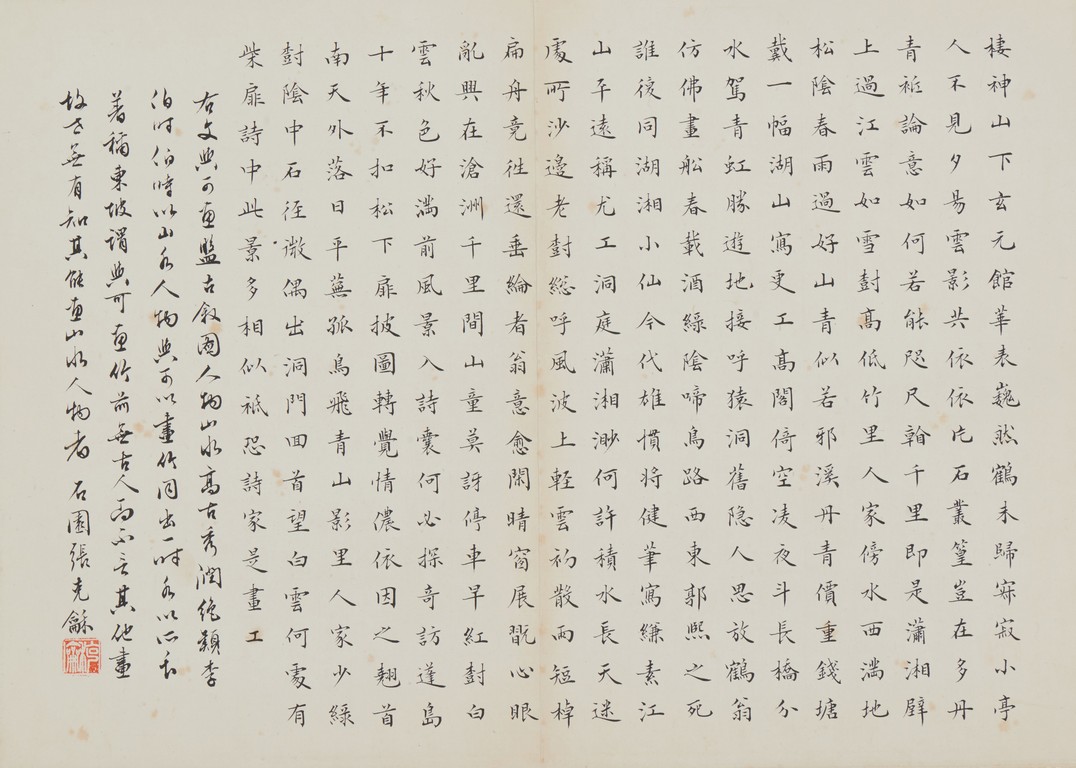 棲神山下玄元館華表巍然鶴未歸寂寂小亭
人不見夕昜雲影共依依片石叢篁豈在多丹
青袛論意如何若能咫尺翰千里即是瀟湘壁
上過江雲如雪尌高低竹里人家傍水西满地
松陰春雨過好山青似若邪溪丹青價重錢塘
戴一幅湖山寫更工高閣倚空凌夜斗長橋分
水駕青虹勝遊地接呼猿洞舊隐人思放鶴翁
仿佛畫船春載酒綠陰啼鳥路西東郭熙之死
誰後同湖湘小仙今代雄慣將健筆寫縑素江
山平遠稱尤工洞庭瀟湘渺何許積水長天迷
處所沙邊老尌總呼風波上軽雲初散雨短棹
扁舟竟往還垂綸者翁意愈閑晴窗展翫心眼
亂興在滄洲千里間山童莫訝停車早紅尌白
雲秋色好满前風景入詩囊何必探奇訪蓬島
十年不扣松下扉披圖轉覺情濃依因之翹首
南天外落日平蕪孤鳥飛青山影里人家少綠
尌陰中石徑微偶出洞門回首望白雲何處有
柴扉詩中此景多相似祗恐詩家是畫工
右文與可画盬古叙圖人物山水高古秀潤絶類李
伯时伯時以山水人物與可以畫竹同出一时各以所
著稱東坡謂與可画竹前無古人而不言其他畫
故世無有知其能画山水人物者 石園張克龢